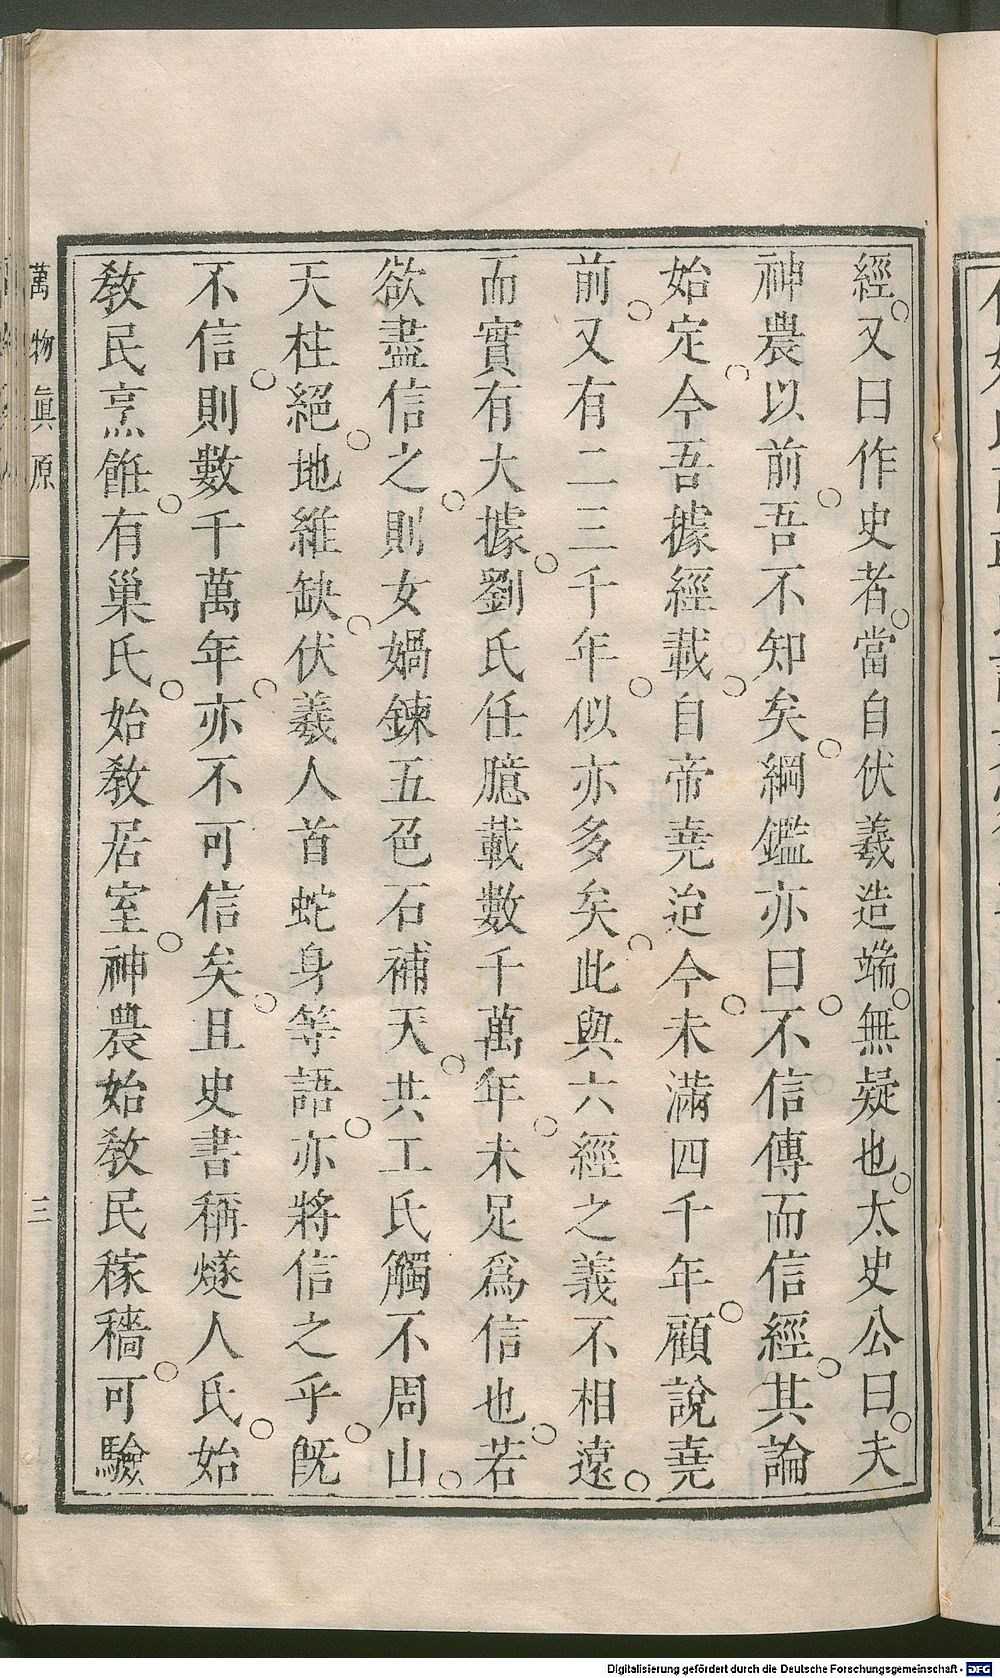 經又曰作史者當自伏羲造端無疑也太史公曰夫
神農以前吾不知矣綱鑑亦曰不信傳而信經其論
始定今吾據經載自帝堯迨今未滿四千年顧說堯
前又有二三千年似亦多矣此與六經之義不相遠
而實有大據劉氏任臆載數千萬年未足爲信也若
欲盡信之則女媧鍊五色石補天共工氏觸不周山
天柱絕地維缺伏羲人首蛇身等語亦將信之乎旣
不信則數千萬年亦不可信矣且史書稱燧人氏始
敎民烹飪有巢氏始敎居室神農始敎民稼穡可驗
萬物眞原
三
Digitalisierung gefördert durch die Deutsche Forschungsgemeinschaft - DFG